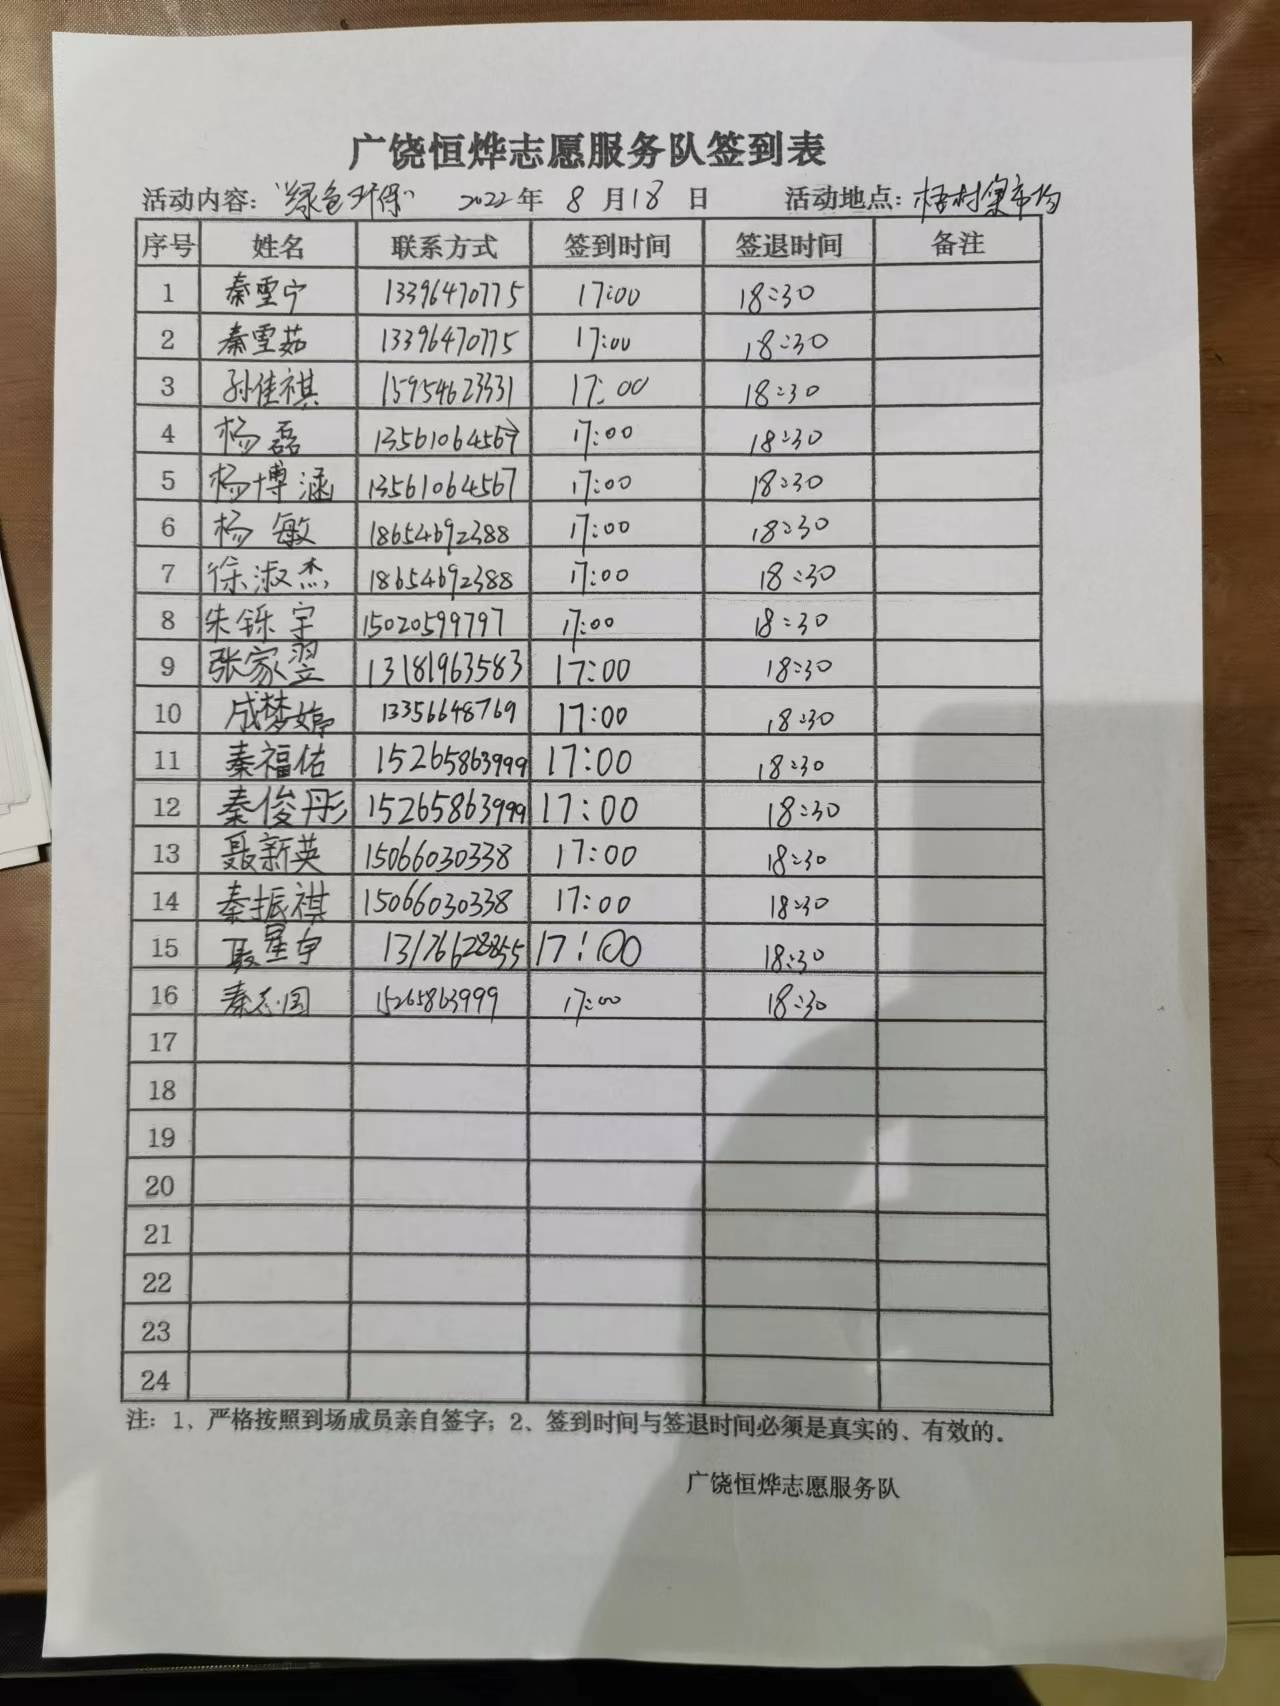 广饶恒烨志愿服务队签到表
活动内容：“绿色环保” 2022年 8 月18 日 活动地点：梧村集市均
序号 姓名 联系方式 签到时间 签退时间 备注
1 秦雪宁 13396470775 17:00 18:30
2 秦雪茹 13396470775 17:00 18:30
3 孙佳祺 15954623331 17:00 18:30
4 杨磊 13561064567 17:00 18:30
5 杨博涵 13561064567 17:00 18:30
6 杨敏 18654692388 17:00 18:30
7 徐淑杰 18654692388 17:00 18:30
8 朱铄宇 15020599797 17:00 18:30
9 张家翌 13181963583 17:00 18:30
10 成梦婷 13356648769 17:00 18:30
11 秦福佑 15265863999 17:00 18:30
12 秦俊彤 15265863999 17:00 18:30
13 聂新英 15066030338 17:00 18:30
14 秦振祺 15066030338 17:00 18:30
15 聂星宇 13176628855 17:00 18:30
16 秦志国 15265863999 17:00 18:30
17
18
19
20
21
22
23
24
注：1、严格按照到场成员亲自签字；2、签到时间与签退时间必须是真实的、有效的.
广饶恒烨志愿服务队